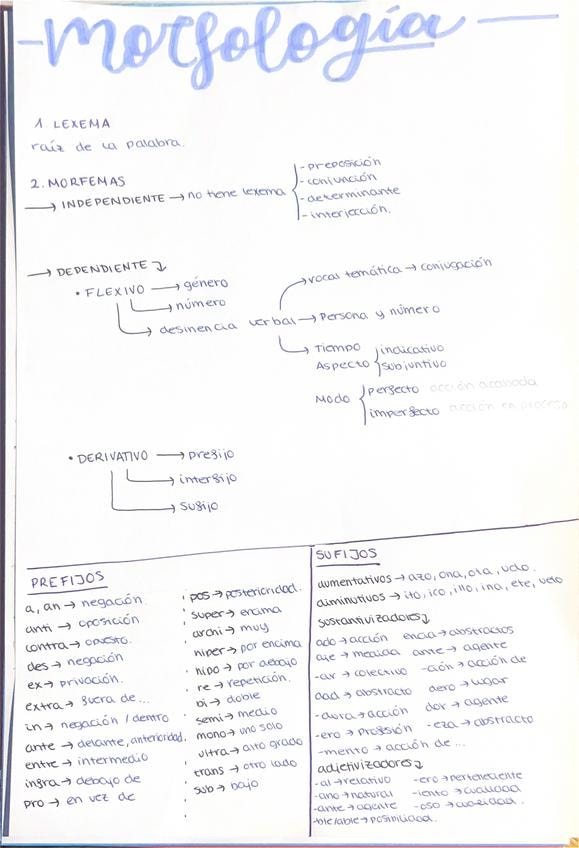 -Morfología-
1. LEXEMA
raíz de la palabra.
2. MORFEMAS
→ INDEPENDIENTE → no tiene lexema
- preposición
- conjunción
- determinante
- interjección.
→ DEPENDIENTE
• FLEXIVO → género
→ número
→ desinencia verbal
→ vocal temática → conjugación
→ Persona y número
→ Tiempo
Aspecto
indicativo
subjuntivo
Modo
perfecto acción acabada
imperfecto acción en proceso
• DERIVATIVO → prefijo
→ interfijo
→ sufijo
PREFIJOS
a, an → negación.
anti → oposición
contra → opuesto.
des → negación
ex → privación.
extra → fuera de...
in → negación / dentro
ante → delante, anterioridad.
entre → intermedio
infra → debajo de
pro → en vez de
pos → posterioridad.
super → encima
archi → muy
hiper → por encima
hipo → por debajo
re → repetición.
bi → doble
semi → medio
mono → uno solo
ultra → alto grado
trans → otro lado
sub → bajo
SUFIJOS
aumentativos → azo, ona, ota, udo.
diminutivos → ito, ico, illo, ina, ete, uelo
sustantivizadores
ado → acción encia → abstractos
aje → medida ante → agente
-ar → colectivo -ción → acción de
dad → abstracto dero → lugar
-dura → acción dor → agente
-ero → profesión -eza → abstracto
-mento → acción de...
adjetivizadores
-al → relativo -ero → perteneciente
-ano → natural -iento → cualidad
-ante → agente -oso → cualidad.
-ble/able → posibilidad.